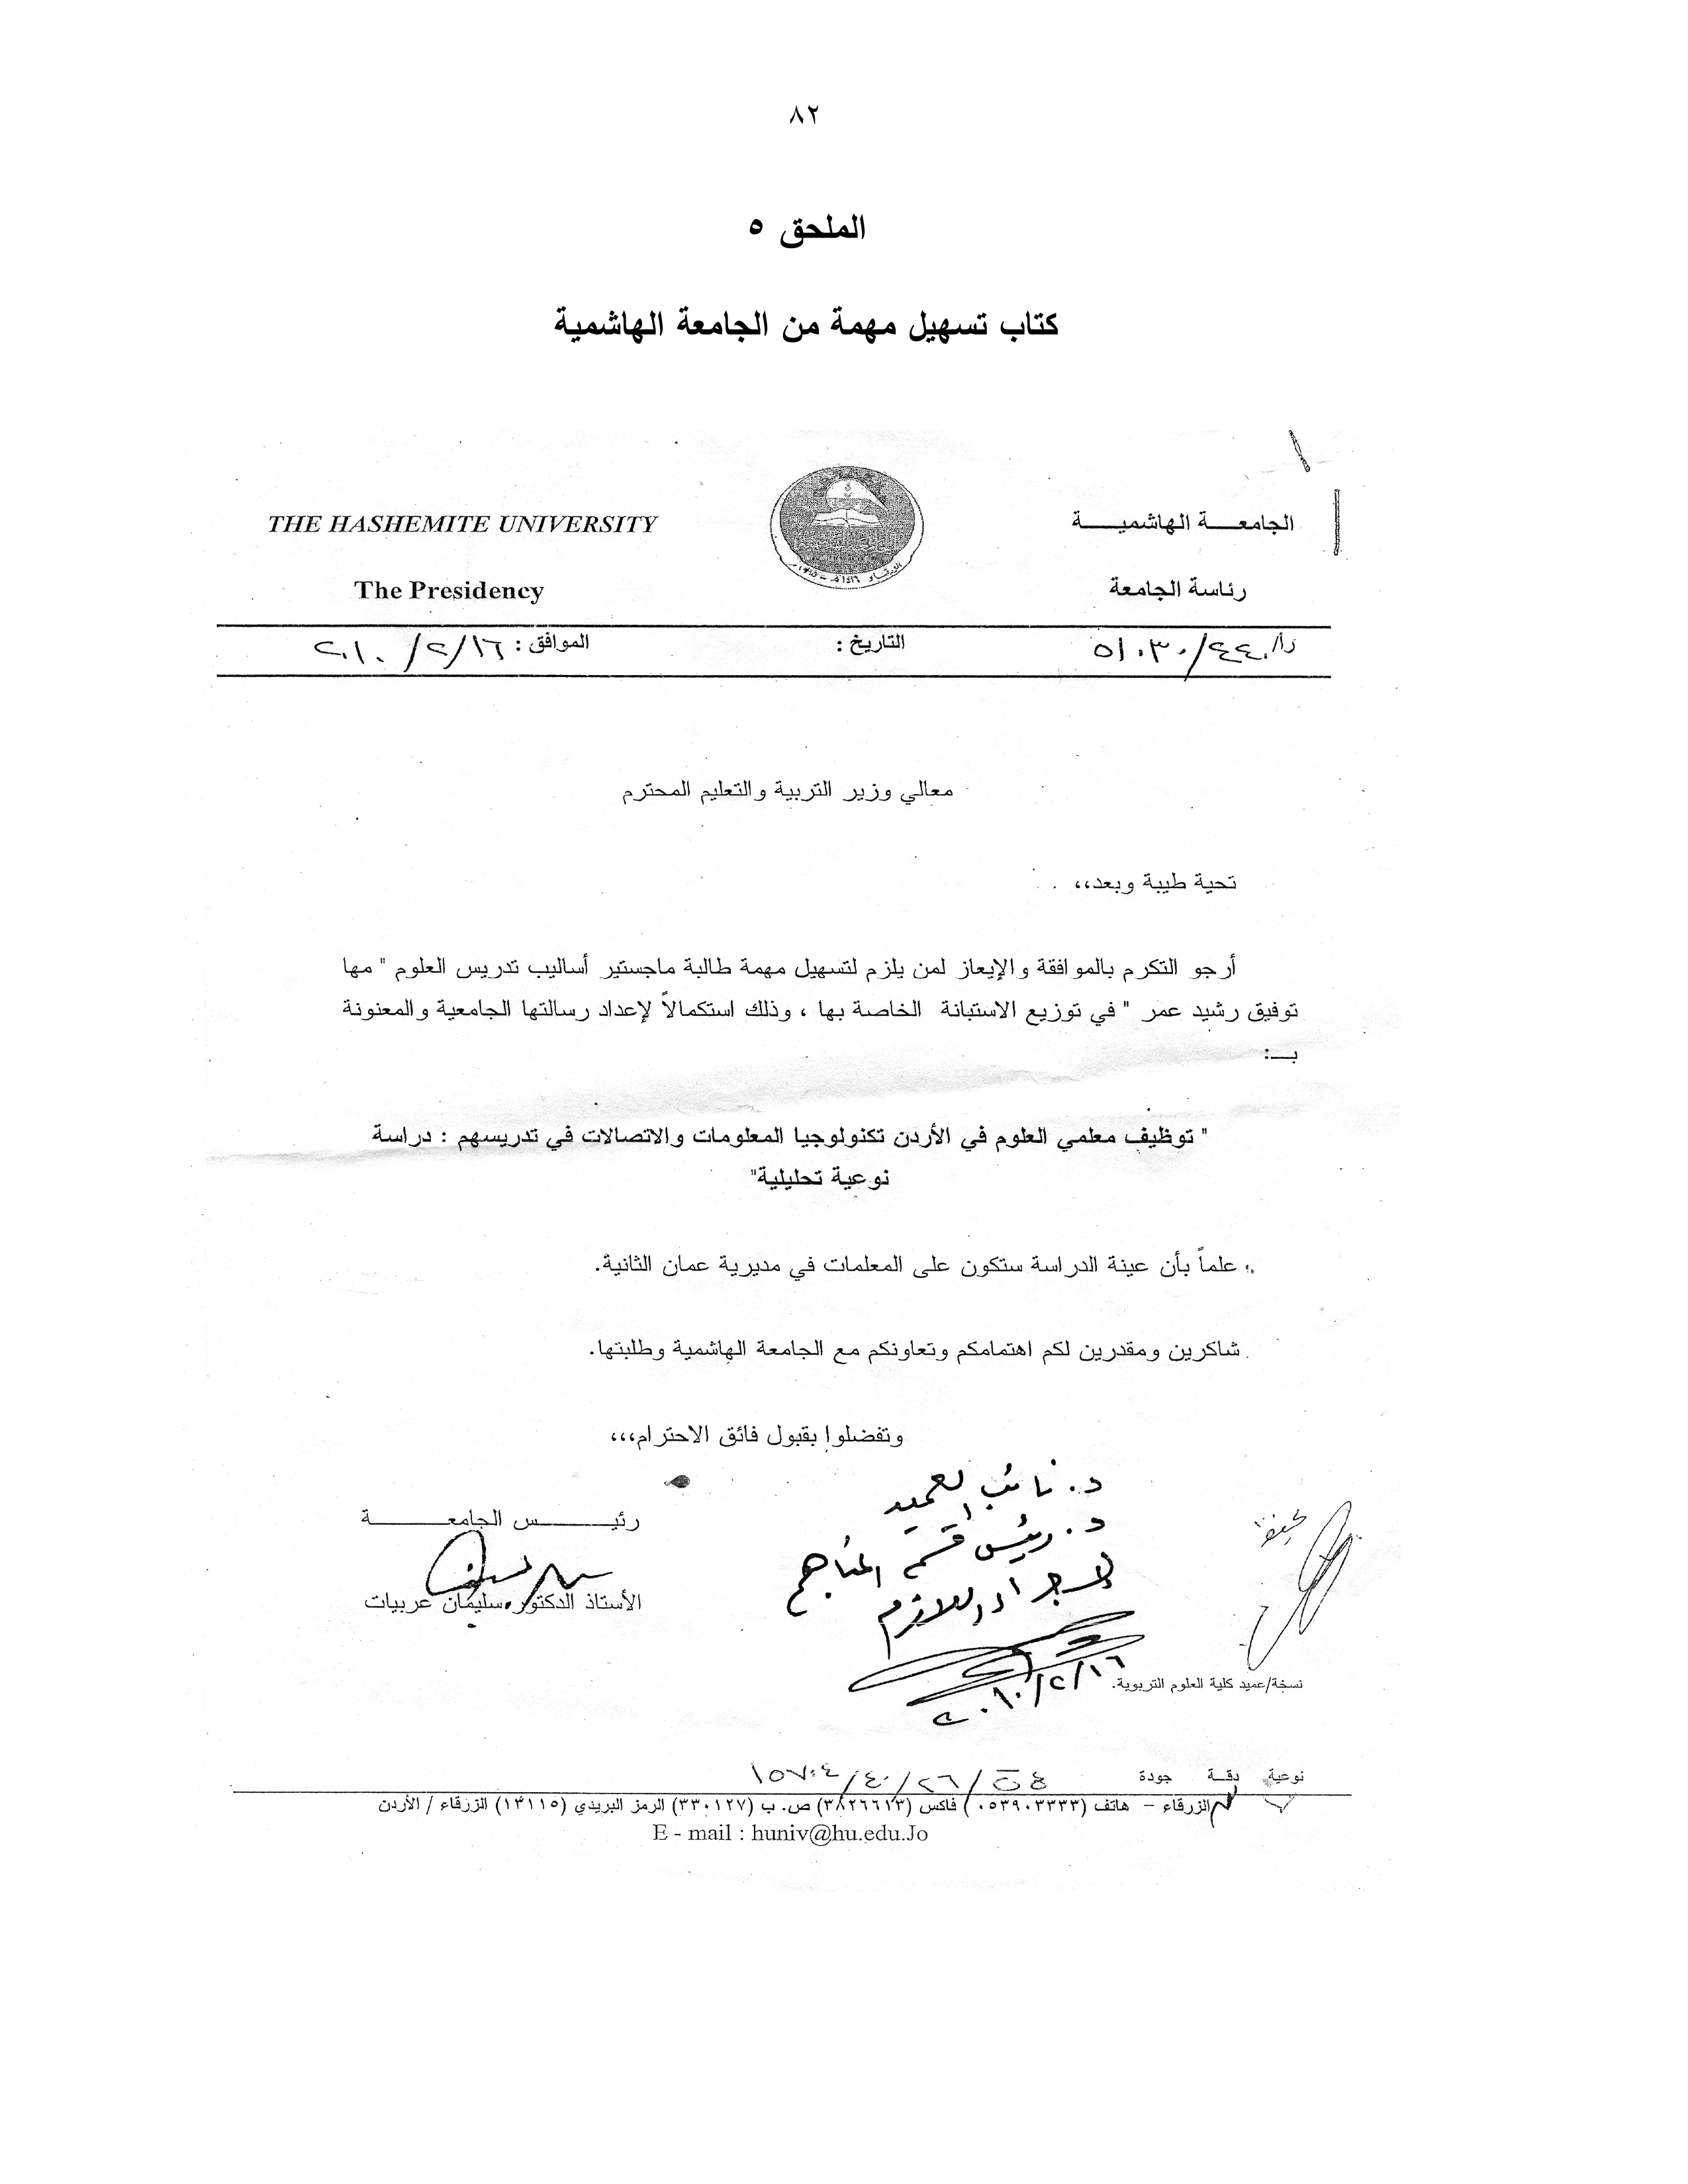 ٨٢
الملحق ٥
كتاب تسهيل مهمة من الجامعة الهاشمية
THE HASHEMITE UNIVERSITY
الجامعة الهاشمية
The Presidency
رئاسة الجامعة
التاريخ :
الموافق : ٢٠١٠/٢/١٦
معالي وزير التربية والتعليم المحترم
تحية طيبة وبعد،،
أرجو التكرم بالموافقة والإيعاز لمن يلزم لتسهيل مهمة طالبة ماجستير أساليب تدريس العلوم " مها
توفيق رشيد عمر " في توزيع الاستبانة الخاصة بها ، وذلك استكمالاً لإعداد رسالتها الجامعية والمعنونة
بـ:
" توظيف معلمي العلوم في الأردن تكنولوجيا المعلومات والاتصالات في تدريسهم : دراسة
نوعية تحليلية"
علماً بأن عينة الدراسة ستكون على المعلمات في مديرية عمان الثانية.
شاكرين ومقدرين لكم اهتمامكم وتعاونكم مع الجامعة الهاشمية وطلبتها.
وتفضلوا بقبول فائق الاحترام،،،
د. نائب العميد
د. رئيس قسم المناهج
لإجراء اللازم
٢٠١٠/٢/١٦
رئيس الجامعة
الأستاذ الدكتور سليمان عربيات
نسخة/عميد كلية العلوم التربوية.
نوعية دقة جودة
الزرقاء – هاتف (٠٥٣٩٠٣٣٣٣) فاكس (٣٨٢٦٦١٣) ص. ب (٣٣٠١٢٧) الرمز البريدي (١٣١١٥) الزرقاء / الأردن
E - mail : huniv@hu.edu.Jo